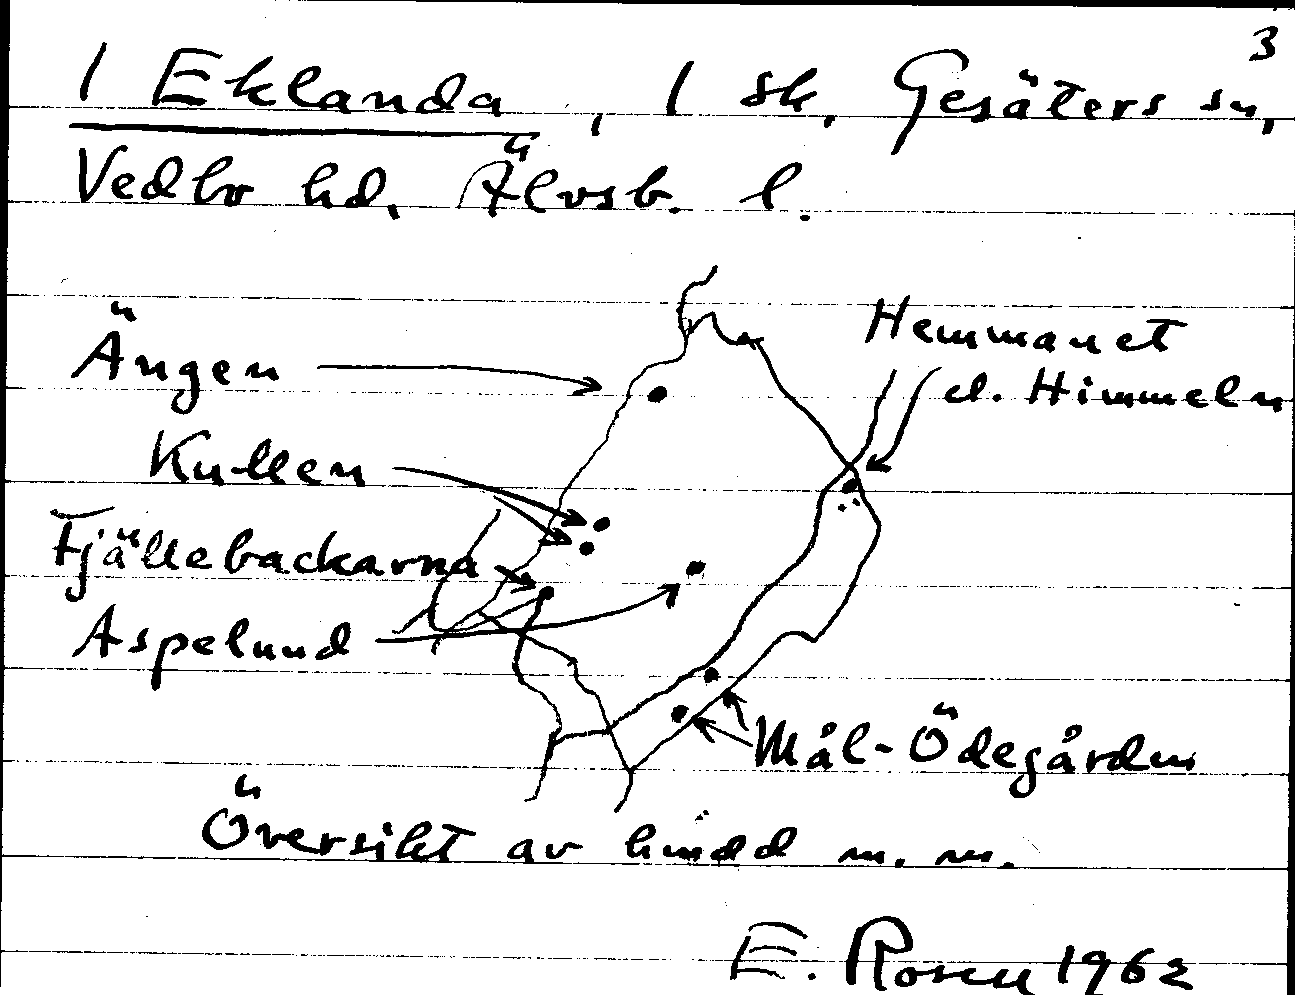 3
1 Eklanda, 1 sk, Gesäters sn,
Vedbo hd. Älvsb. l.
Hemmanet
el. Himmeln
Ängen
Kullen
Fjällebackarna
Aspelund
Mål-Ödegården
Översikt av hmdd m. m.
E. Rosen 1962